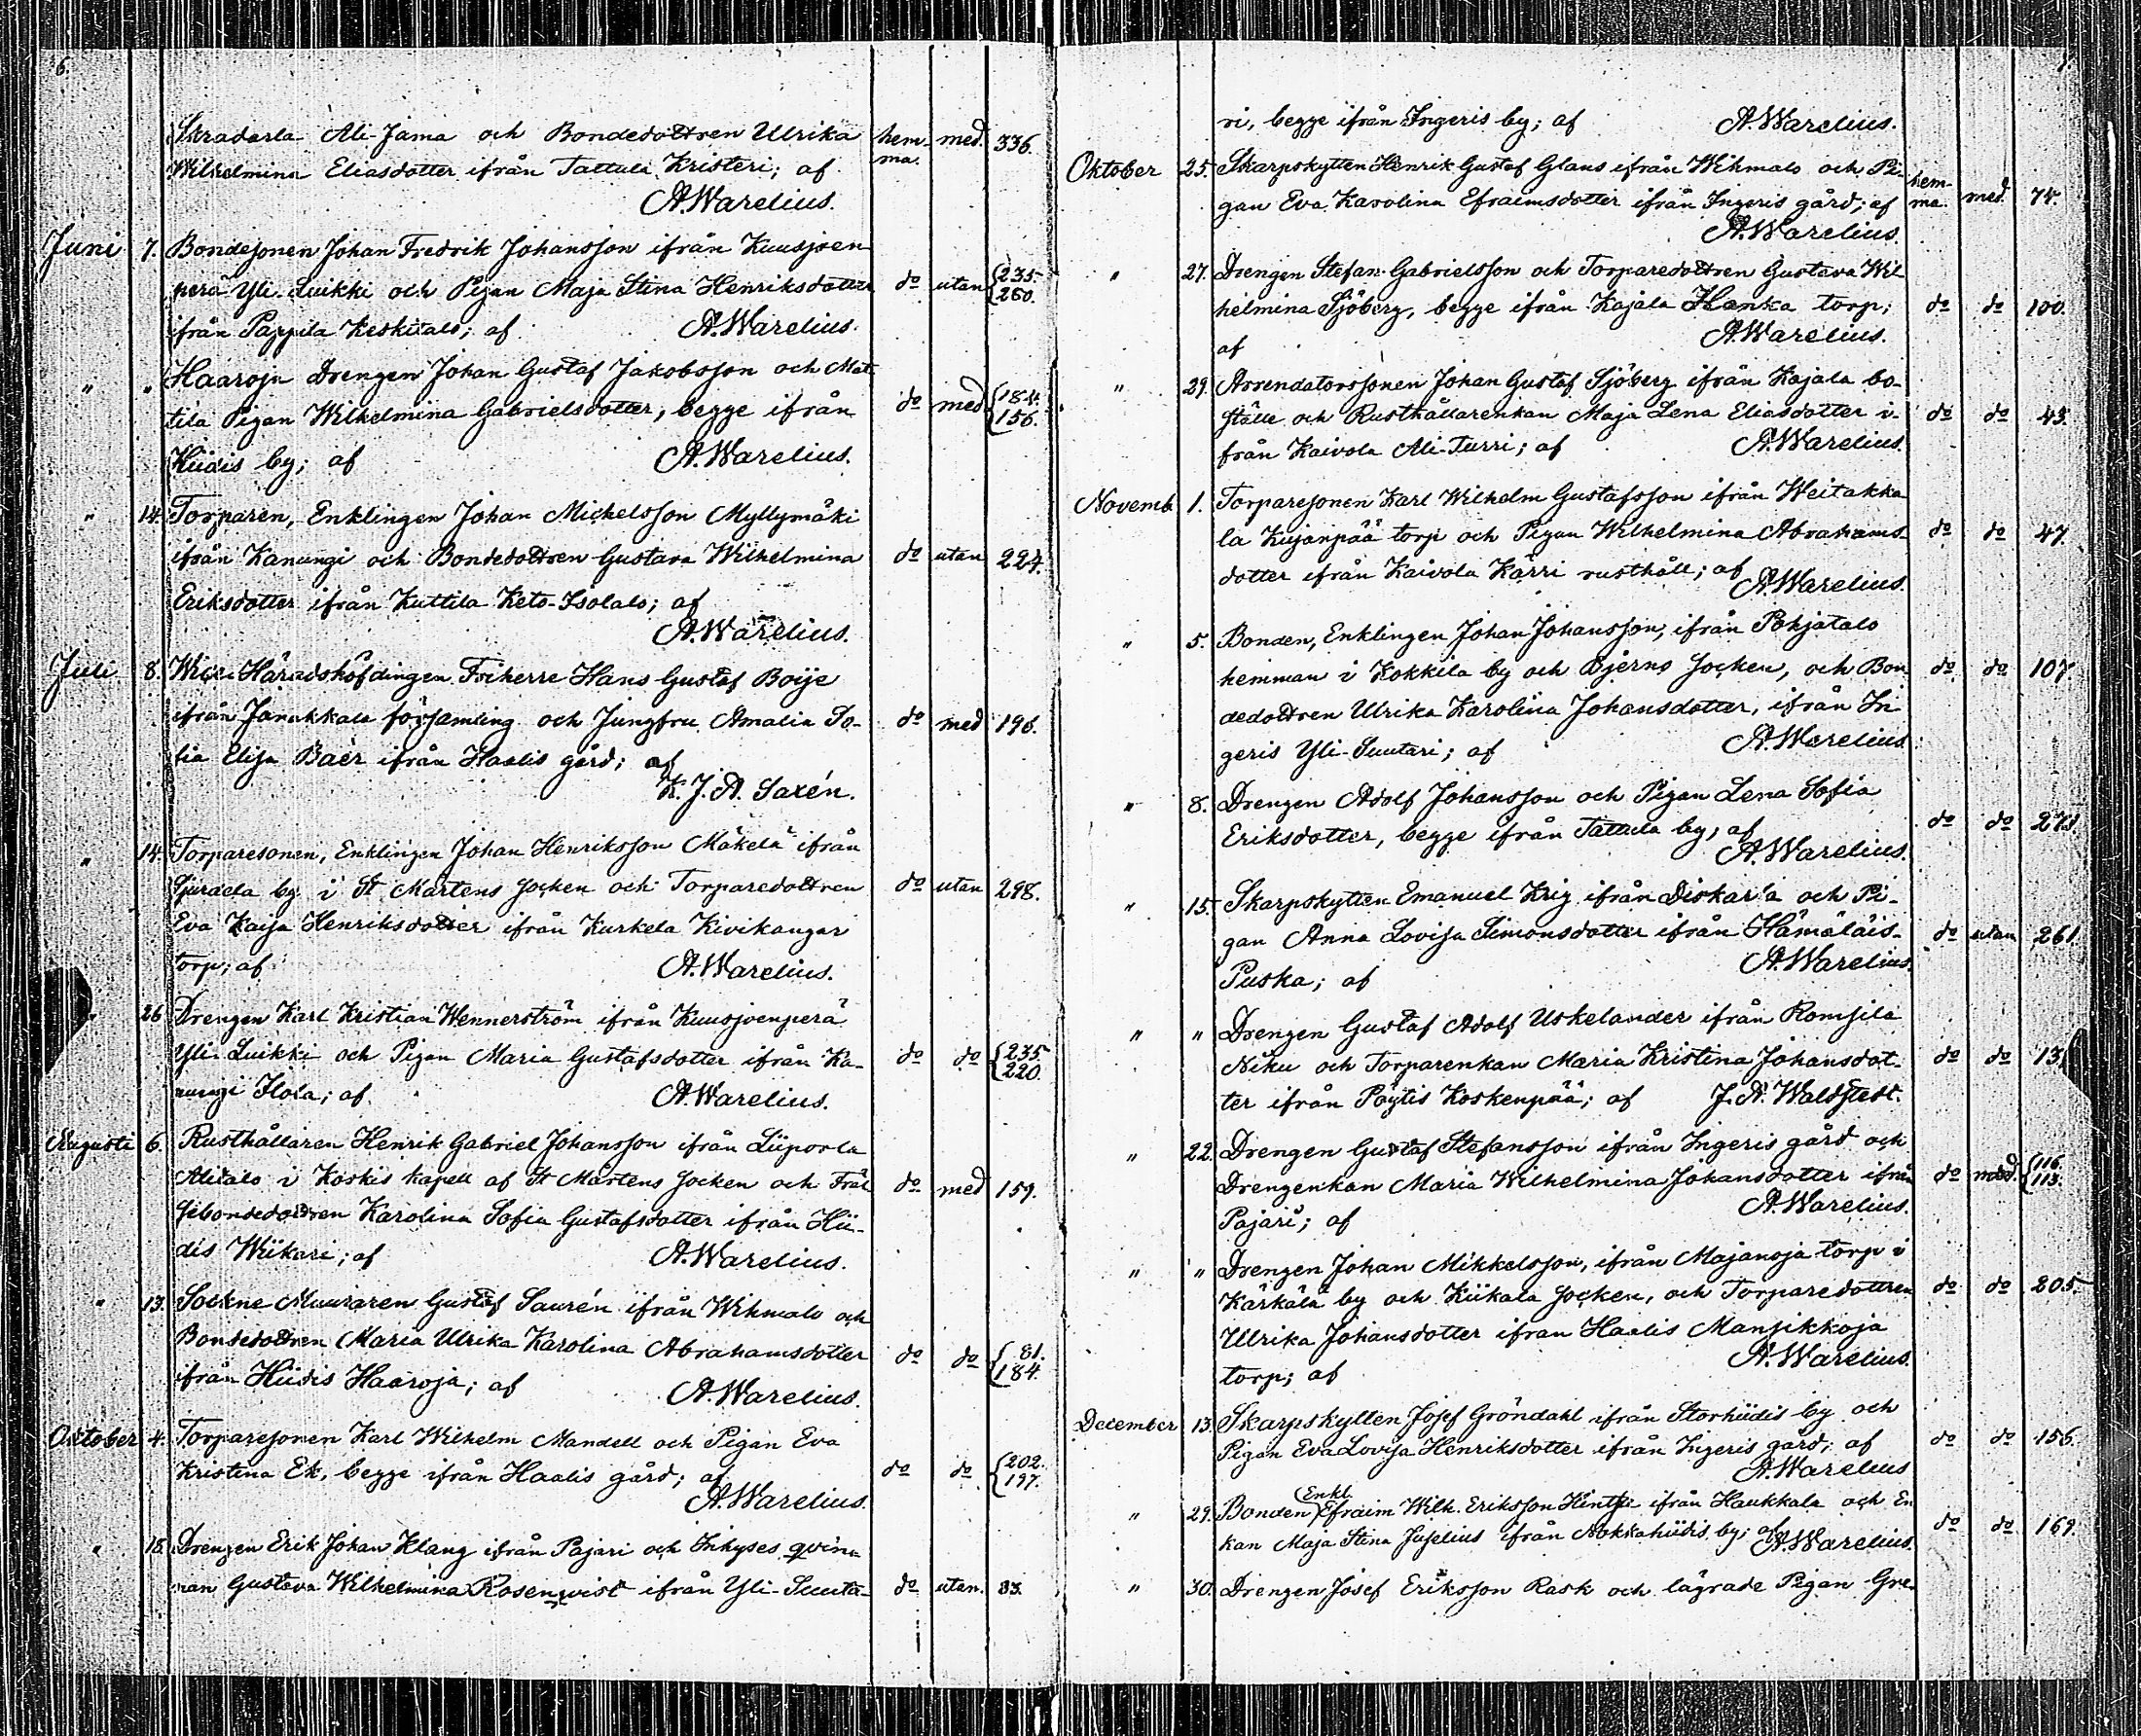 6.
Skradarla Ali-Jama och Bondedottren Ulrika hem- med. 336.
Wilhelmina Eliasdotter ifrån Tattula Kristeri; af ma.
A. Warelius.
Juni 7. Bondesonen Johan Fredrik Johansson ifrån Kuusjoen-
perä Yli-Luikki och Pigan Maja Stina Henriksdotter do utan {235. 260.
ifrån Pappila Keskitalo; af A. Warelius.
" " Haaroja Drengen Johan Gustaf Jakobsson och Mat-
tila Pigan Wilhelmina Gabrielsdotter, begge ifrån do med {184. 156.
Hiidis by; af A. Warelius.
" 14. Torparen, Enklingen Johan Michelsson Myllymäki
ifrån Kanungi och Bondedottren Gustava Wilhelmina do utan 224.
Eriksdotter ifrån Kuttila Keto-Isotalo; af
A. Warelius.
Juli 8. Wice Häradshöfdingen Friherre Hans Gustaf Boije
ifrån Janakkala församling och Jungfru Amalia So- do med 196.
fia Elisa Baër ifrån Haalis gård; af
K. J. A. Saxén.
" 14. Torparesonen, Enklingen Johan Henriksson Mäkelä ifrån
by i St Mårtens socken och Torparedottren do utan 298.
Eva Kaisa Henriksdotter ifrån Kurkela Kivikangar
torp; af A. Warelius.
" 26 Drengen Karl Kristian Wennerström ifrån Kuusjoenperä
Yli-Luikki och Pigan Maria Gustafsdotter ifrån Ka- do do {235. 220.
nungi Flola; af A. Warelius.
Augusti 6. Rusthållaren Henrik Gabriel Johansson ifrån Liipola
Alitalo i Koskis kapell af St Mårtens socken och Fräl- do med 159.
sebondedottren Karolina Sofia Gustafsdotter ifrån Hii-
dis Wiikari; af A. Warelius.
" 13. Sockne Muuraren Gustaf Saurén ifrån Wihmalo och
Bondedottren Maria Ulrika Karolina Abrahamsdotter do do {81. 184.
ifrån Hiidis Haaroja; af A. Warelius.
Oktober 4. Torparesonen Karl Wilhelm Mandell och Pigan Eva
Kristina Ek, begge ifrån Haalis gård; af do do {202. 197.
A. Warelius.
" 18. Drengen Erik Johan Klang ifrån Pajari och Inhyses qvin-
nan Gustava Wilhelmina Rosenqvist ifrån Yli-Suuta- do utan. 83.
7.
ri, begge ifrån Ingeris by; af A. Warelius.
Oktober 25. Skarpskytten Henrik Gustaf Glans ifrån Wihmalo och Pi- hem-
gan Eva Karolina Efraimsdotter ifrån Ingeris gård; af ma. med. 74.
A. Warelius.
" 27. Drengen Stefan Gabrielsson och Torparedottren Gustava Wil-
helmina Sjöberg, begge ifrån Kajala Hanka torp; do do 100.
af A. Warelius.
" 29. Arrendatorssonen Johan Gustaf Sjöberg ifrån Kajala bo-
ställe och Rusthållarenkan Maja Lena Eliasdotter i- do do 43.
från Kaivola Ali-Turri; af A. Warelius.
Novemb. 1. Torparesonen Karl Wilhelm Gustafsson ifrån Weitakka-
la Kujanpää torp och Pigan Wilhelmina Abrahams- do do 47.
dotter ifrån Kaivola Kärri rusthåll; af
A. Warelius.
" 5. Bonden, Enklingen Johan Johansson, ifrån Pohjatalo
hemman i Kokkila by och Bjerno socken, och Bon- do do 107.
dedottren Ulrika Karolina Johansdotter, ifrån In-
geris Yli-Suutari; af A. Warelius.
" 8. Drengen Adolf Johansson och Pigan Lena Sofia
Eriksdotter, begge ifrån Tattula by; af do do 273.
A. Warelius.
" 15. Skarpskytten Emanuel Krig ifrån Diskarla och Pi-
gan Anna Lovisa Simonsdotter ifrån Hämäläis- do utan 261.
Puska; af A. Warelius.
" " Drengen Gustaf Adolf Uskelander ifrån Romsila
Niku och Torparenkan Maria Kristina Johansdot- do do 13
ter ifrån Pöytis Koskenpää; af J. A. Waldstedt.
" 22. Drengen Gustaf Stefansson ifrån Ingeris gård och
Drengenkan Maria Wilhelmina Johansdotter ifrån do med. {116. 113.
Pajari; af A. Warelius.
" " Drengen Johan Mikkelsson, ifrån Majanoja torp i
Kärkälä by och Kiikala socken, och Torparedottren do do 205.
Ulrika Johansdotter ifran Haalis Mansikkoja
torp; af A. Warelius.
December 13. Skarpskytten Josef Gröndahl ifrån Storhiidis by och
Pigan Eva Lovisa Henriksdotter ifrån Ingeris gård; af do do 156.
A. Warelius
" 29. Bonden Enkl. Efraim Wilh. Eriksson ifrån Haukkala och En-
kan Maja Stina Juselius ifrån Nokkahiidis by; af do do 169.
A. Warelius.
" 30. Drengen Josef Eriksson Rask och lägrade Pigan Gre-